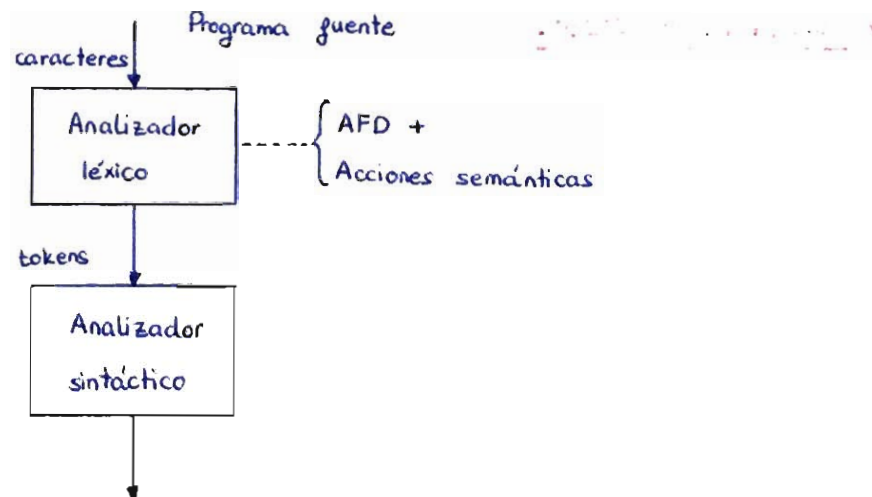 Programa fuente
caracteres
Analizador
léxico
AFD +
Acciones semánticas
tokens
Analizador
sintáctico